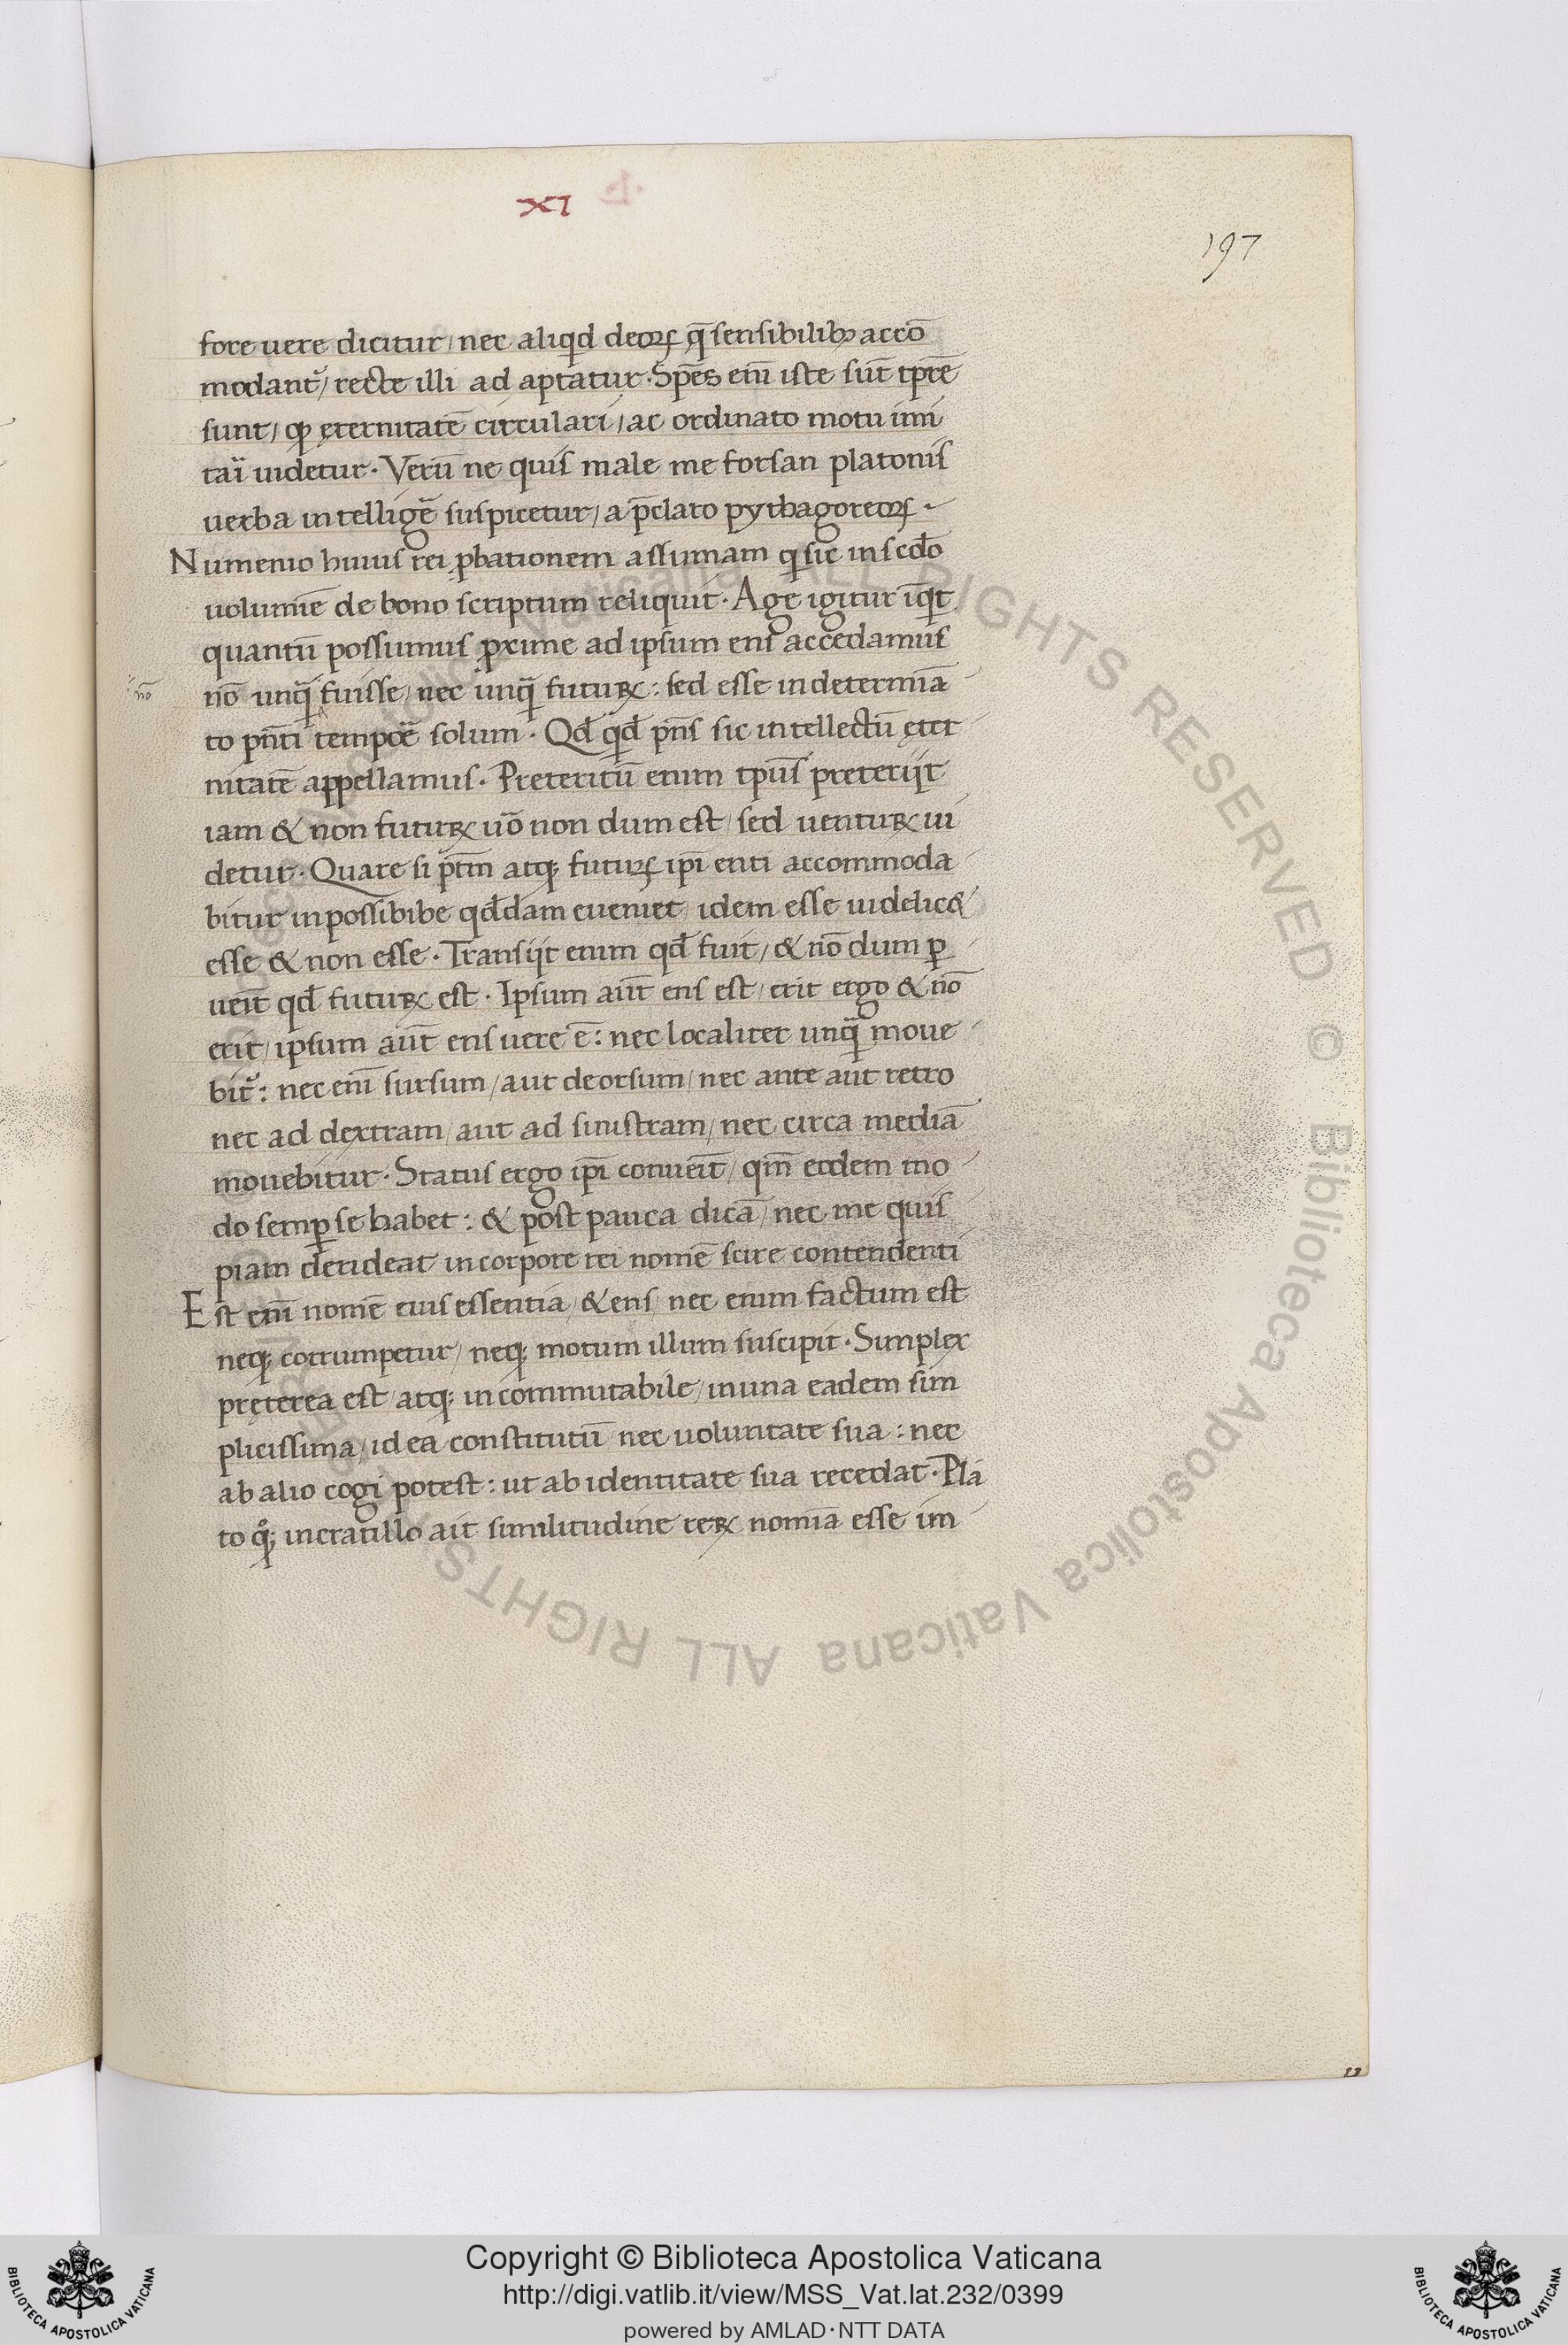 XI
197
fore uere dicitur / nec aliqd deoꝝ q̄ sensibilibꝫ accō
modant᷑ / recte illi ad aptatur. Spēs eni᷑ iste sūt tpr̄e
sunt / qꝫ ęternitatē circulari / ac ordinato motu imi
tari uidetur. Verū ne quis male me forsan platonis
uerba intelligē suspicetur / a p̄claro pythagoreoꝝ
Numenio huius rei ꝓbationem assumam q̄ sic in scd̄o
uolumīe de bono scriptum reliquit. Age igitur īq̄t
quantū possumus ꝓxime ad ipsum ens accedamus
nō
nō unq̄ fuisse / nec unq̄ futuꝝ: sed esse in determīa
to pn̄ti tempōe solum. Qd̄ qd̄ pn̄s sic intellectū ęter
nitatē appellamus. Preteritū enim tpūs preterijt
iam & non futuꝝ uō non dum est / sed uentuꝝ ui
detur. Quare si pt̄m atqꝫ futuꝝ ip̄i enti accommoda
bitur inpossibibe qd̄dam eueniet / idem esse uidelic&
esse & non esse. Transijt enim qd̄ fuit / & nō dum ꝑ
uēit qd̄ futuꝝ est. Ipsum aūt ens est / erit ergo & nō
erit / ipsum aūt ens uere ē: nec localiter unq̄ moue
bit᷑: nec eni᷑ sursum / aut deorsum / nec ante aut retro
nec ad dextram / aut ad sinistram / nec circa mediā
mouebitur. Status ergo ip̄i conuēit / qm̄ eodem mo
do semꝑ se habet: & post pauca dicā / nec me quis
piam derideat incorpore rei nomē scire contendenti
Est eni᷑ nomē eius essentia / & ens / nec enim factum est
neqꝫ corrumpetur / neqꝫ motum illum suscipit. Simplex
pręterea est / atqꝫ incommutabile / in una eadem sim
plicissima / idea constitutū nec uoluntate sua: nec
ab alio cogi potest: ut ab identitate sua recedat. Pla
to qͦꝫ in cratillo ait similitudine reꝝ nomīa esse im
13
Copyright © Biblioteca Apostolica Vaticana
http://digi.vatlib.it/view/MSS_Vat.lat.232/0399
powered by AMLAD·NTT DATA